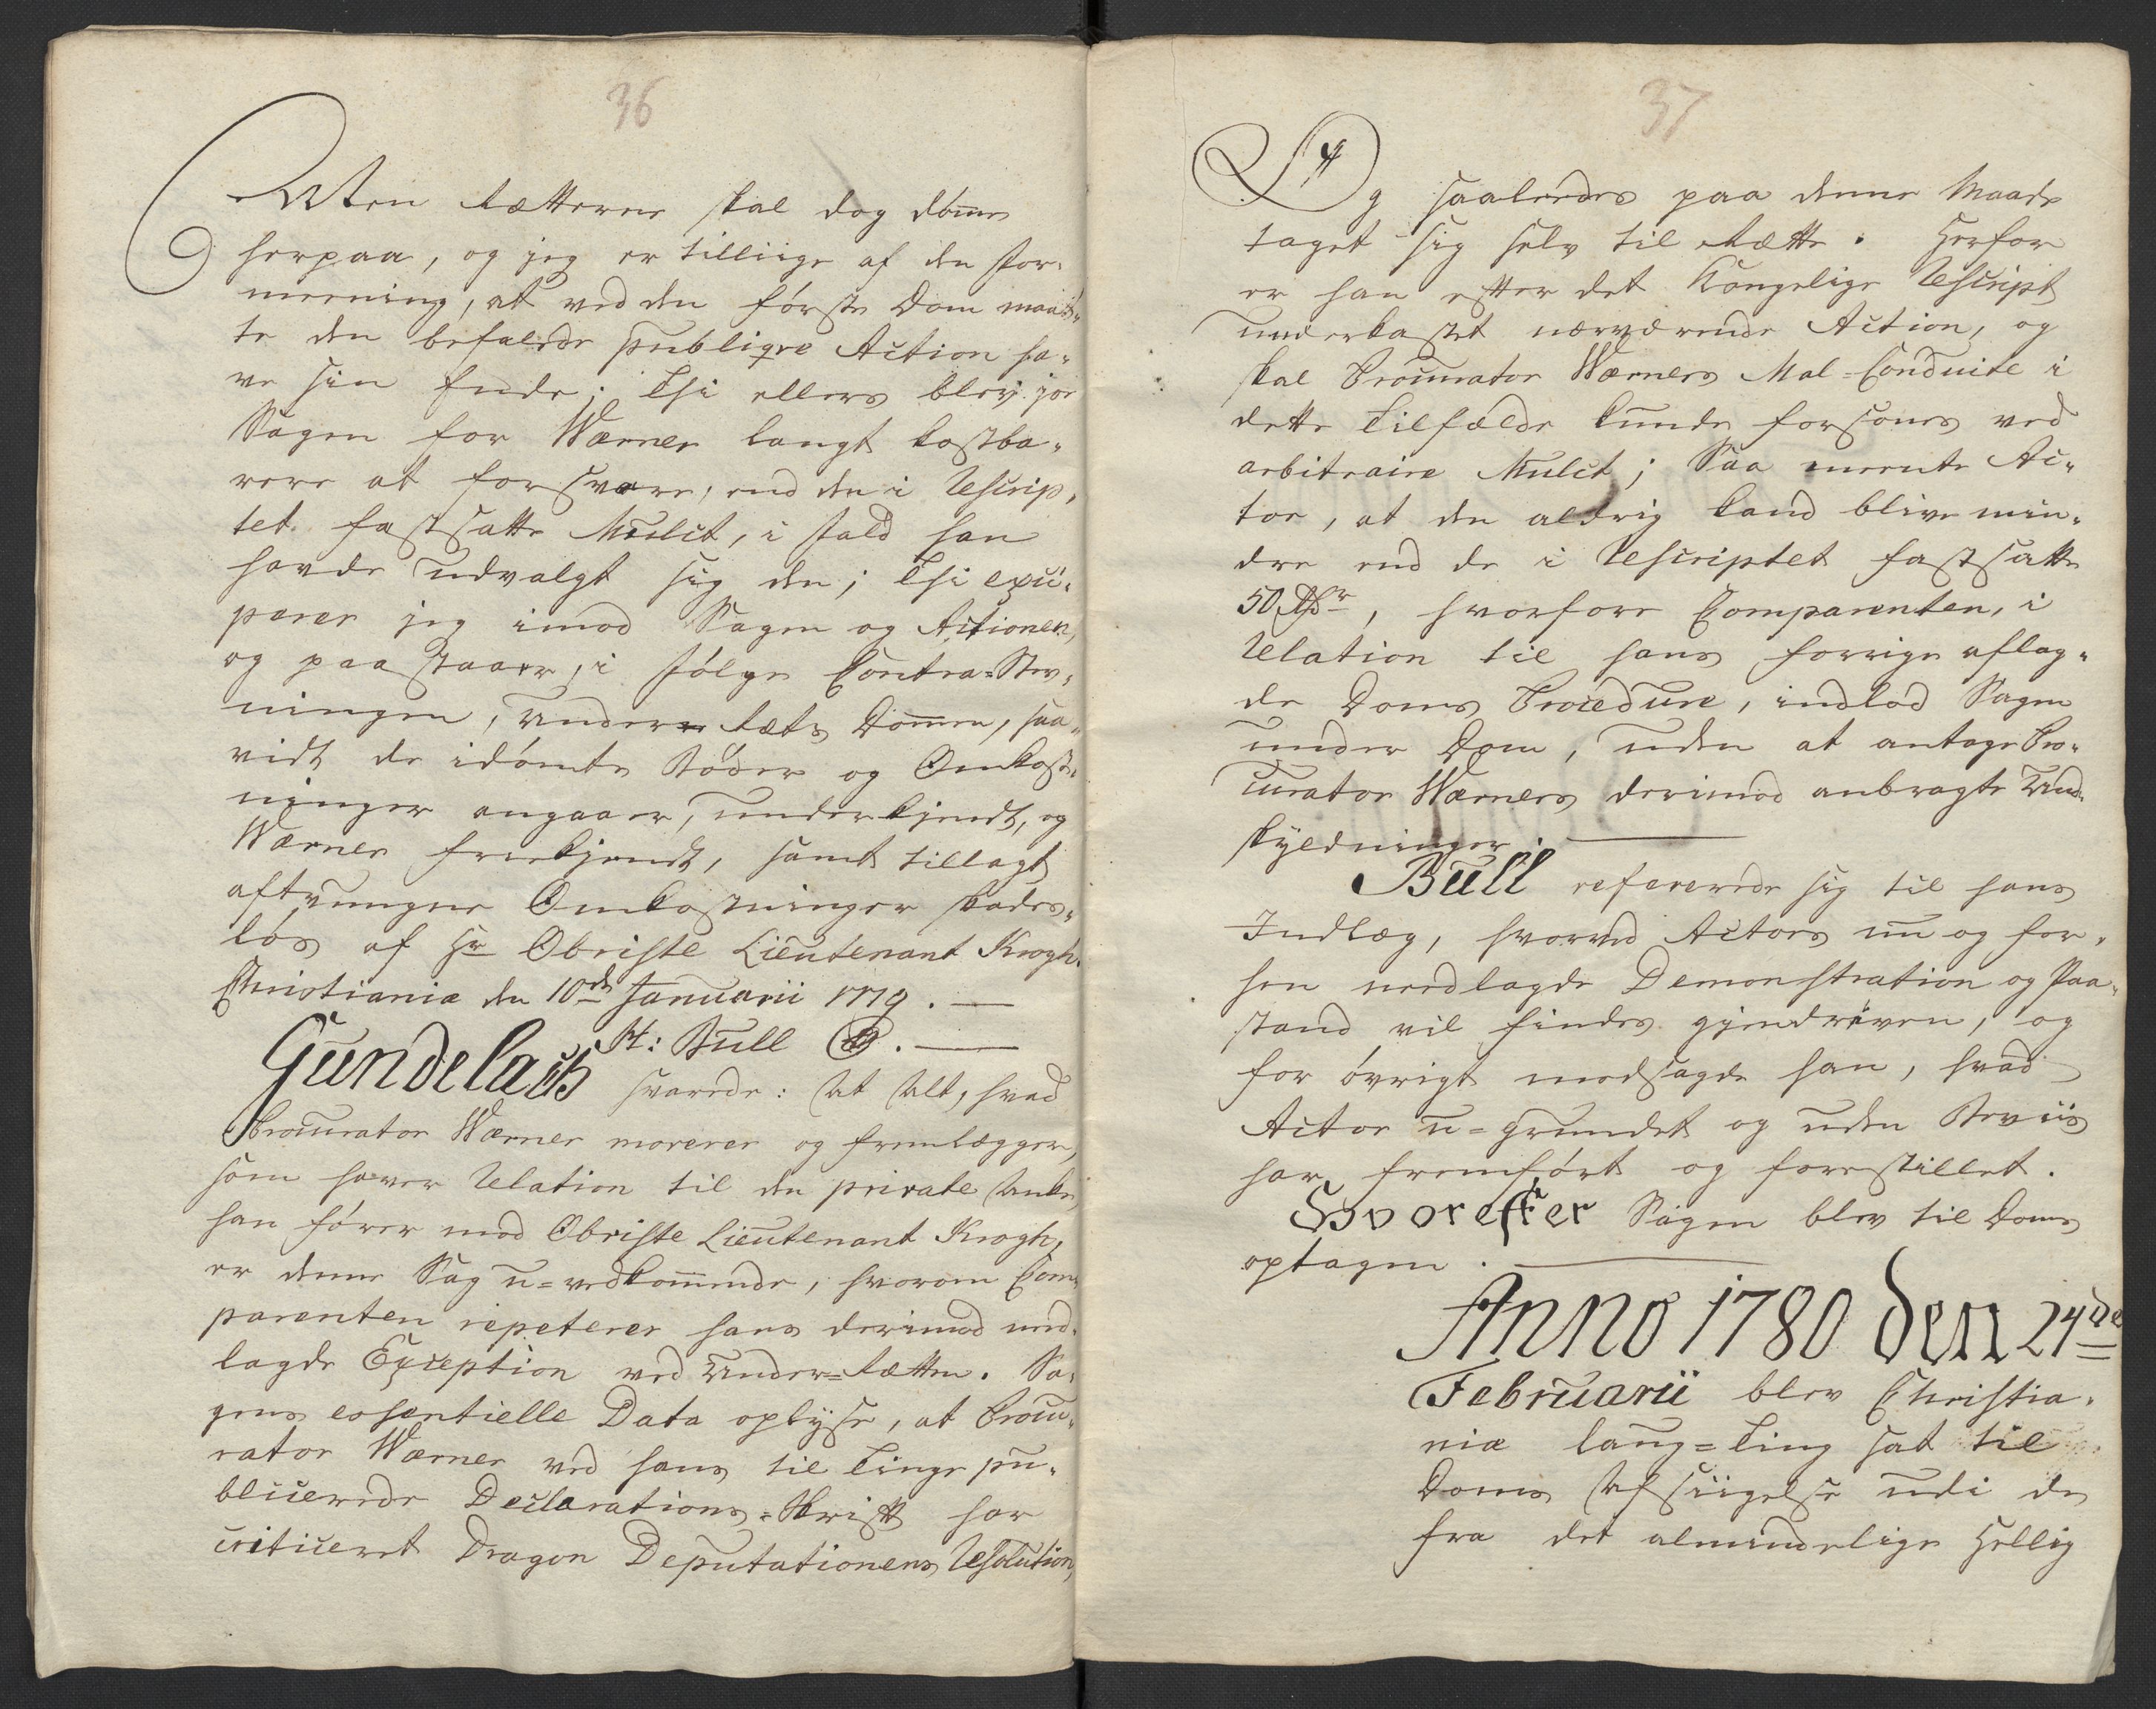 36
Men Rætterne skal dog dømme
herpaa, og jeg er tilliige af den For-
meening, at ved den første Dom maat-
te den befalede publiqve Action ha-
ve sin Ende; Thi ellers blev jo
Sagen for Wærner langt kostba-
rere at forsvare, end den i Rescrip-
tet fastsatte Mulct, i Fald han
havde udvalgt sig den; Thi exci-
perer jeg imod Sagen og Actionen,
og paastaaer, i Følge Contra-Stev-
ningen, Under Rets Dommen, saa-
vidt de idømte Bøder og Omkost-
ninger angaaer, underkjendt, og
Wærner frikjendt, samt tillagt
aftvungne Omkostninger skades-
løs af Hr Obriste Lieutenant Krogh.
Christiania den 10de Januarii 1779. —
H: Bull .—
Gundelach svarede: At Alt, hvad
Procurator Wærner moverer og fremlægger,
som haver Relation til den private Anke,
han fører mod Obriste Lieutenant Krogh,
er denne Sag u-vedkommende, hvorom Com-
parenten repeterer hans derimod ned-
lagde Exception ved Under-Rætten. Sa-
gens essentielle Data oplyse, at Procu-
rator Wærner ved hans til Tinge pu-
blicerede Declarations-Skrift har
criticeret Dragon Deputationens Resolution,
37
Og saaledes paa denne Maade
taget sig selv til Rætte. Herfor
er han efter det Kongelige Rescript
underkastet nærværende Action, og
skal Procurator Wærners Mal-Conduite i
dette Tilfælde kunde forsones ved
arbitraire Mulct; Saa meente Ac-
tor, at den aldrig kand blive min-
dre end de i Rescriptet fastsatte
50 Rdr, hvorfore Comparenten, i
Relation til hans forrige aflag-
de Doms Procedure, indlod Sagen
under Dom, uden at antage Pro-
curator Wærners derimod anbragte Und-
skyldninger. —
Bull refererede sig til hans
Indlæg, hvorved Actors nu og for-
hen nedlagde Demonstration og Paa-
stand vil findes gjendreven, og
for øvrigt modsagde han, hvad
Actor u-grundet og uden Beviis
har fremført og forestillet.
Hvorefter Sagen blev til Doms
optagen. —
Anno 1780 den 24de
Februarii blev Christia-
niæ Laug-Ting sat til
Doms Afsiigelse udi de
fra det almindelige Hellig